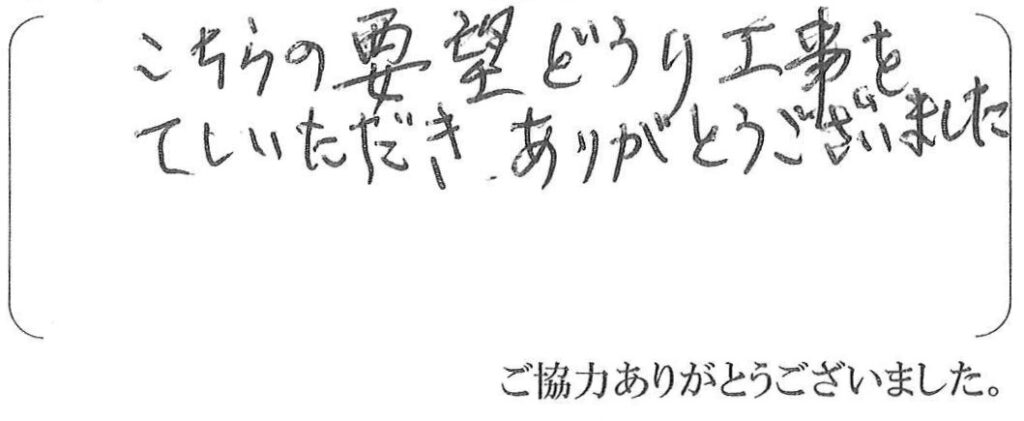 こちらの要望どうり工事を
てしいただき ありがとうございました
ご協力ありがとうございました。